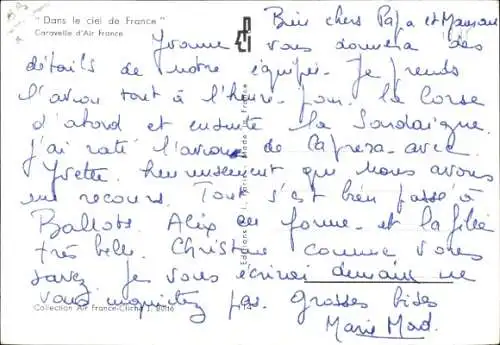 " Dans le ciel de France "
Caravelle d'Air France
Bien chers Papa et Maman
Yvonne vous donnera des
détails de notre équipée. Je prends
l'avion tout à l'heure pour la Corse
d'abord et ensuite la Sardaigne.
j'ai raté l'avion de avec
Yvette. heureusement que nous avons
eu recours. Tout s'est bien passé à
Ballots. Alix en forme et la fille
très belle. Christine comme vous
savez. Je vous écrirai demain ne
vous inquiétez pas. grosses bises
Marie Mad.
Editions P. I., Paris - Made in France
Collection Air France-Cliché J. Belté